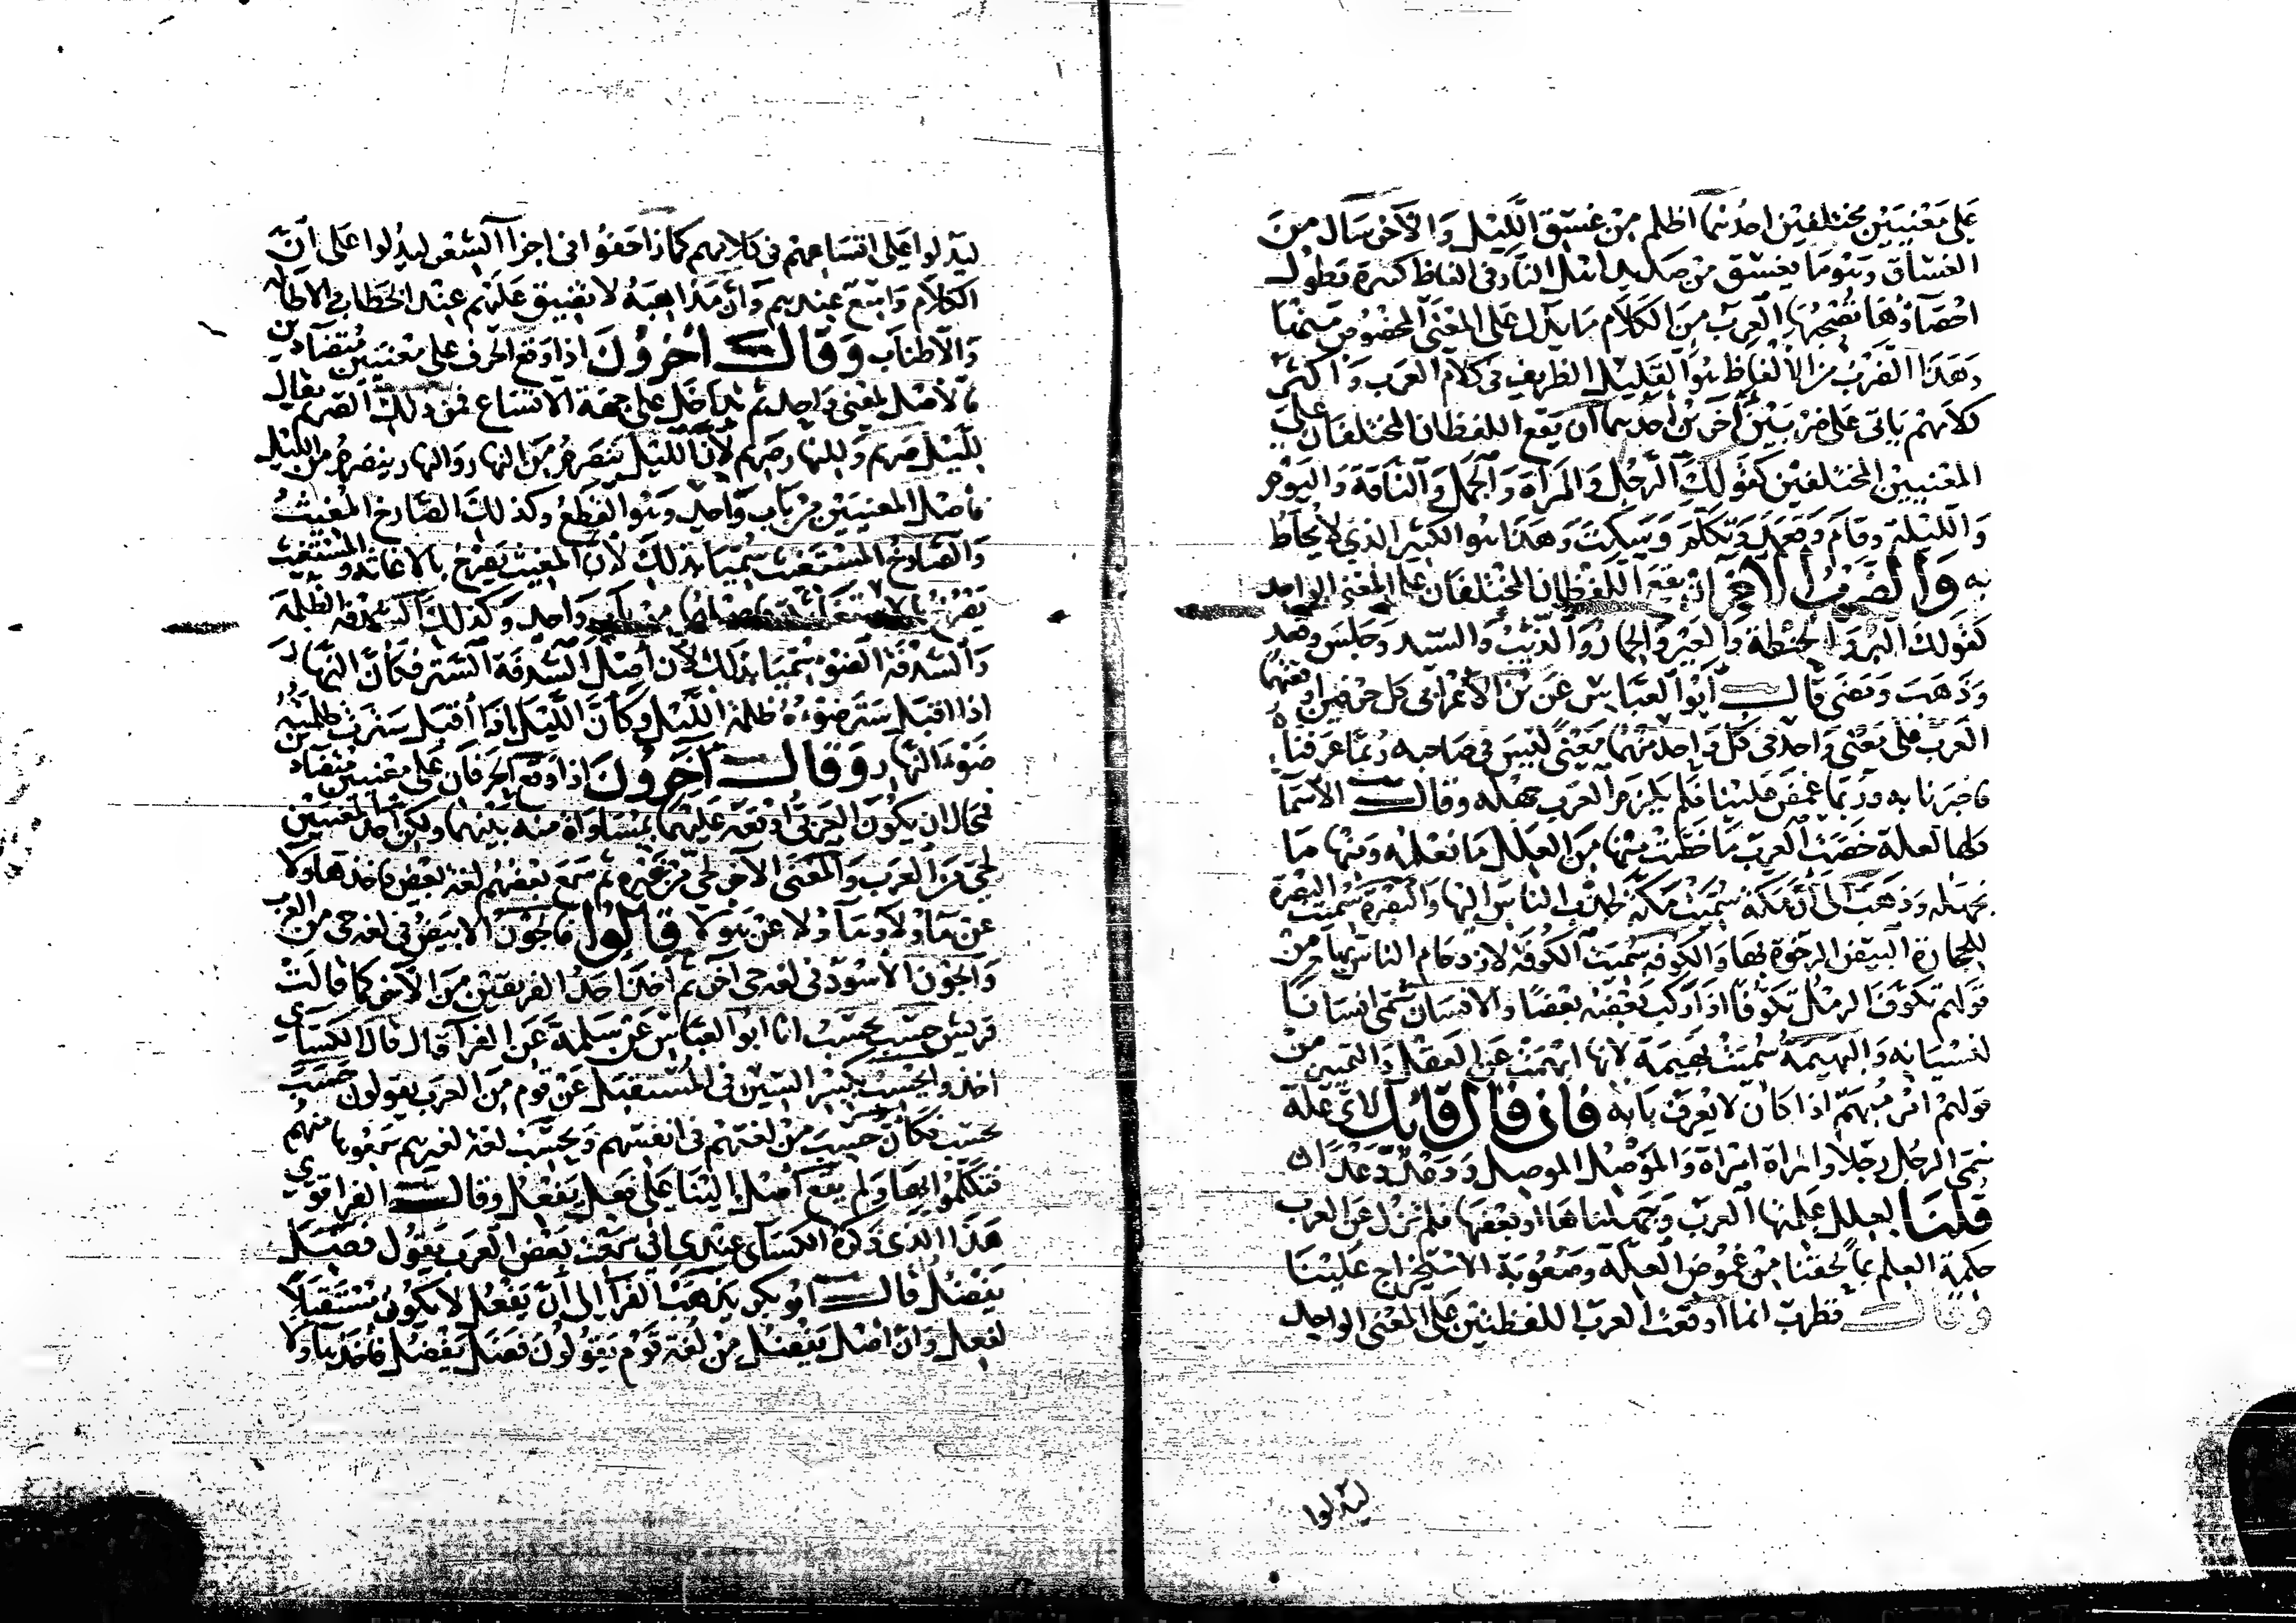 على معنيين مختلفين احدهما اظلم من غسق الليل والآخر سال من
الغساق وهو ما يغسق من صديد اهل النار في الفاظ كثيرة يطول
احصاؤها تصحبها العرب من الكلام ما يدل على المعنى المخصوص منها
وهذا الضرب من الالفاظ هو القليل الظريف في كلام العرب واكثر
كلامهم ياتي على ضربين آخرين احدهما ان يقع اللفظان المختلفان على
المعنيين المختلفين كقولك الرجل والمرأة والجمل والناقة واليوم
والليلة وقام وقعد وتكلم وسكت وهذا هو الكثير الذي لا يحاط
به والضرب الآخر ان يقع اللفظان المختلفان على المعنى الواحد
كقولك البر والحنطة والعير والحمار والذئب والسيد وجلس وقعد
وذهب ومضى قال ابو العباس عن بن الاعرابي كل حرفين اوقعتهما
العرب على معنى واحد في كل واحد منهما معنى ليس في صاحبه ربما عرفناه
فاخبرنا به وربما غمض علينا فلم يلزم العرب جهله وقال الاسما
كلها لعلة خصت العرب ما خصت منها من العلل ما نعلمه ومنها ما
نجهله وذهب الى ان مكة سميت مكة لجذب الناس اليها والبصرة سميت البصرة
للحجارة البيض الرخوة بها والكوفه سميت الكوفه لازدحام الناس بها من
قولهم تكوف الرمل تكوفا اذا ركب بعضه بعضا والانسان سمي انسانا
لنسيانه والبهيمة سميت بهيمة لانها ابهمت عن العقل والتمييز من
قولهم امر مبهم اذا كان لا يعرف بابه فان قال قائل لاي علة
سمي الرجل رجلا والمراة امراة والموصل الموصل ودعد دعدا
قلنا لعلل علمتها العرب وجهلناها او بعضها فلم تزل عن العرب
حكمة العلم بما لحقنا من غموض العلة وصعوبة الاستخراج علينا
وقال قطرب انما اوقعت العرب اللفظتين على المعنى الواحد
ليدلوا
ليدلوا على اتساعهم في كلامهم كما زاحفوا في اجزا الشعر ليدلوا على ان
الكلام واسع عندهم وان مذاهبه لا تضيق عليهم عند الخطاب في الاطاله
والاطناب وقال آخرون اذا وقع الحرف على معنيين متضادين
فالاصل لمعنى واحد ثم تداخل على جهة الاتساع فمن ذلك الصريم يقال
لليل صريم وللنهار صريم لان الليل ينصرم من النهار والنهار ينصرم من الليل
فاصل المعنيين من باب واحد وهو القطع وكذلك الصارخ المغيث
والصارخ المستغيث سميا بذلك لان المغيث يصرخ بالاغاثه والمستغيث
يصرخ بالاستغاثة فاصلهما من باب واحد وكذلك السدفه الظلمة
والسدفة الضوء سميا بذلك لان اصل السدفة الستر فكان النهار
اذا اقبل ستر ضوءه ظلمة الليل وكان الليل اذا اقبل سترت ظلمته
ضوء النهار وقال آخرون اذا وقع الحرفان على معنيين متضادين
فمحال ان يكون العربي اوقعه عليهما بمساواة منه بينهما ولكن احد المعنيين
لحي من العرب والمعنى الآخر لحي من غيره ثم سمع بعضهم لغة بعض فاخذ هاولا
عن هاولا وهاولا عن هولا قالوا فالجون الابيض في لغه حي من العرب
والجون الاسود في لغه حي آخر ثم اخذ احد الفريقين من الآخر كما قالت
قريش حسب يحسب انا ابو العباس عن سلمة عن الفرا قال قال الكساي
اخذوا يحسب بكسر السين في المستقبل عن قوم من العرب يقولون حسب
يحسب فكان حسب من لغتهم في انفسهم ويحسب لغة لغيرهم سمعوها منهم
فتكلموا بها ولم يقع اصل البنا على فعل يفعل وقال الفرا قوى
هذا الذي ذكره الكساي عندي اني سمعت بعض العرب يقول فضل
يفضل قال ابو بكر يذهب الفرا الى ان يفعل لا يكون مستقبلا
لفعل وان اصل يفضل من لغة قوم يقولون فضل يفضل فاخذ هاولا